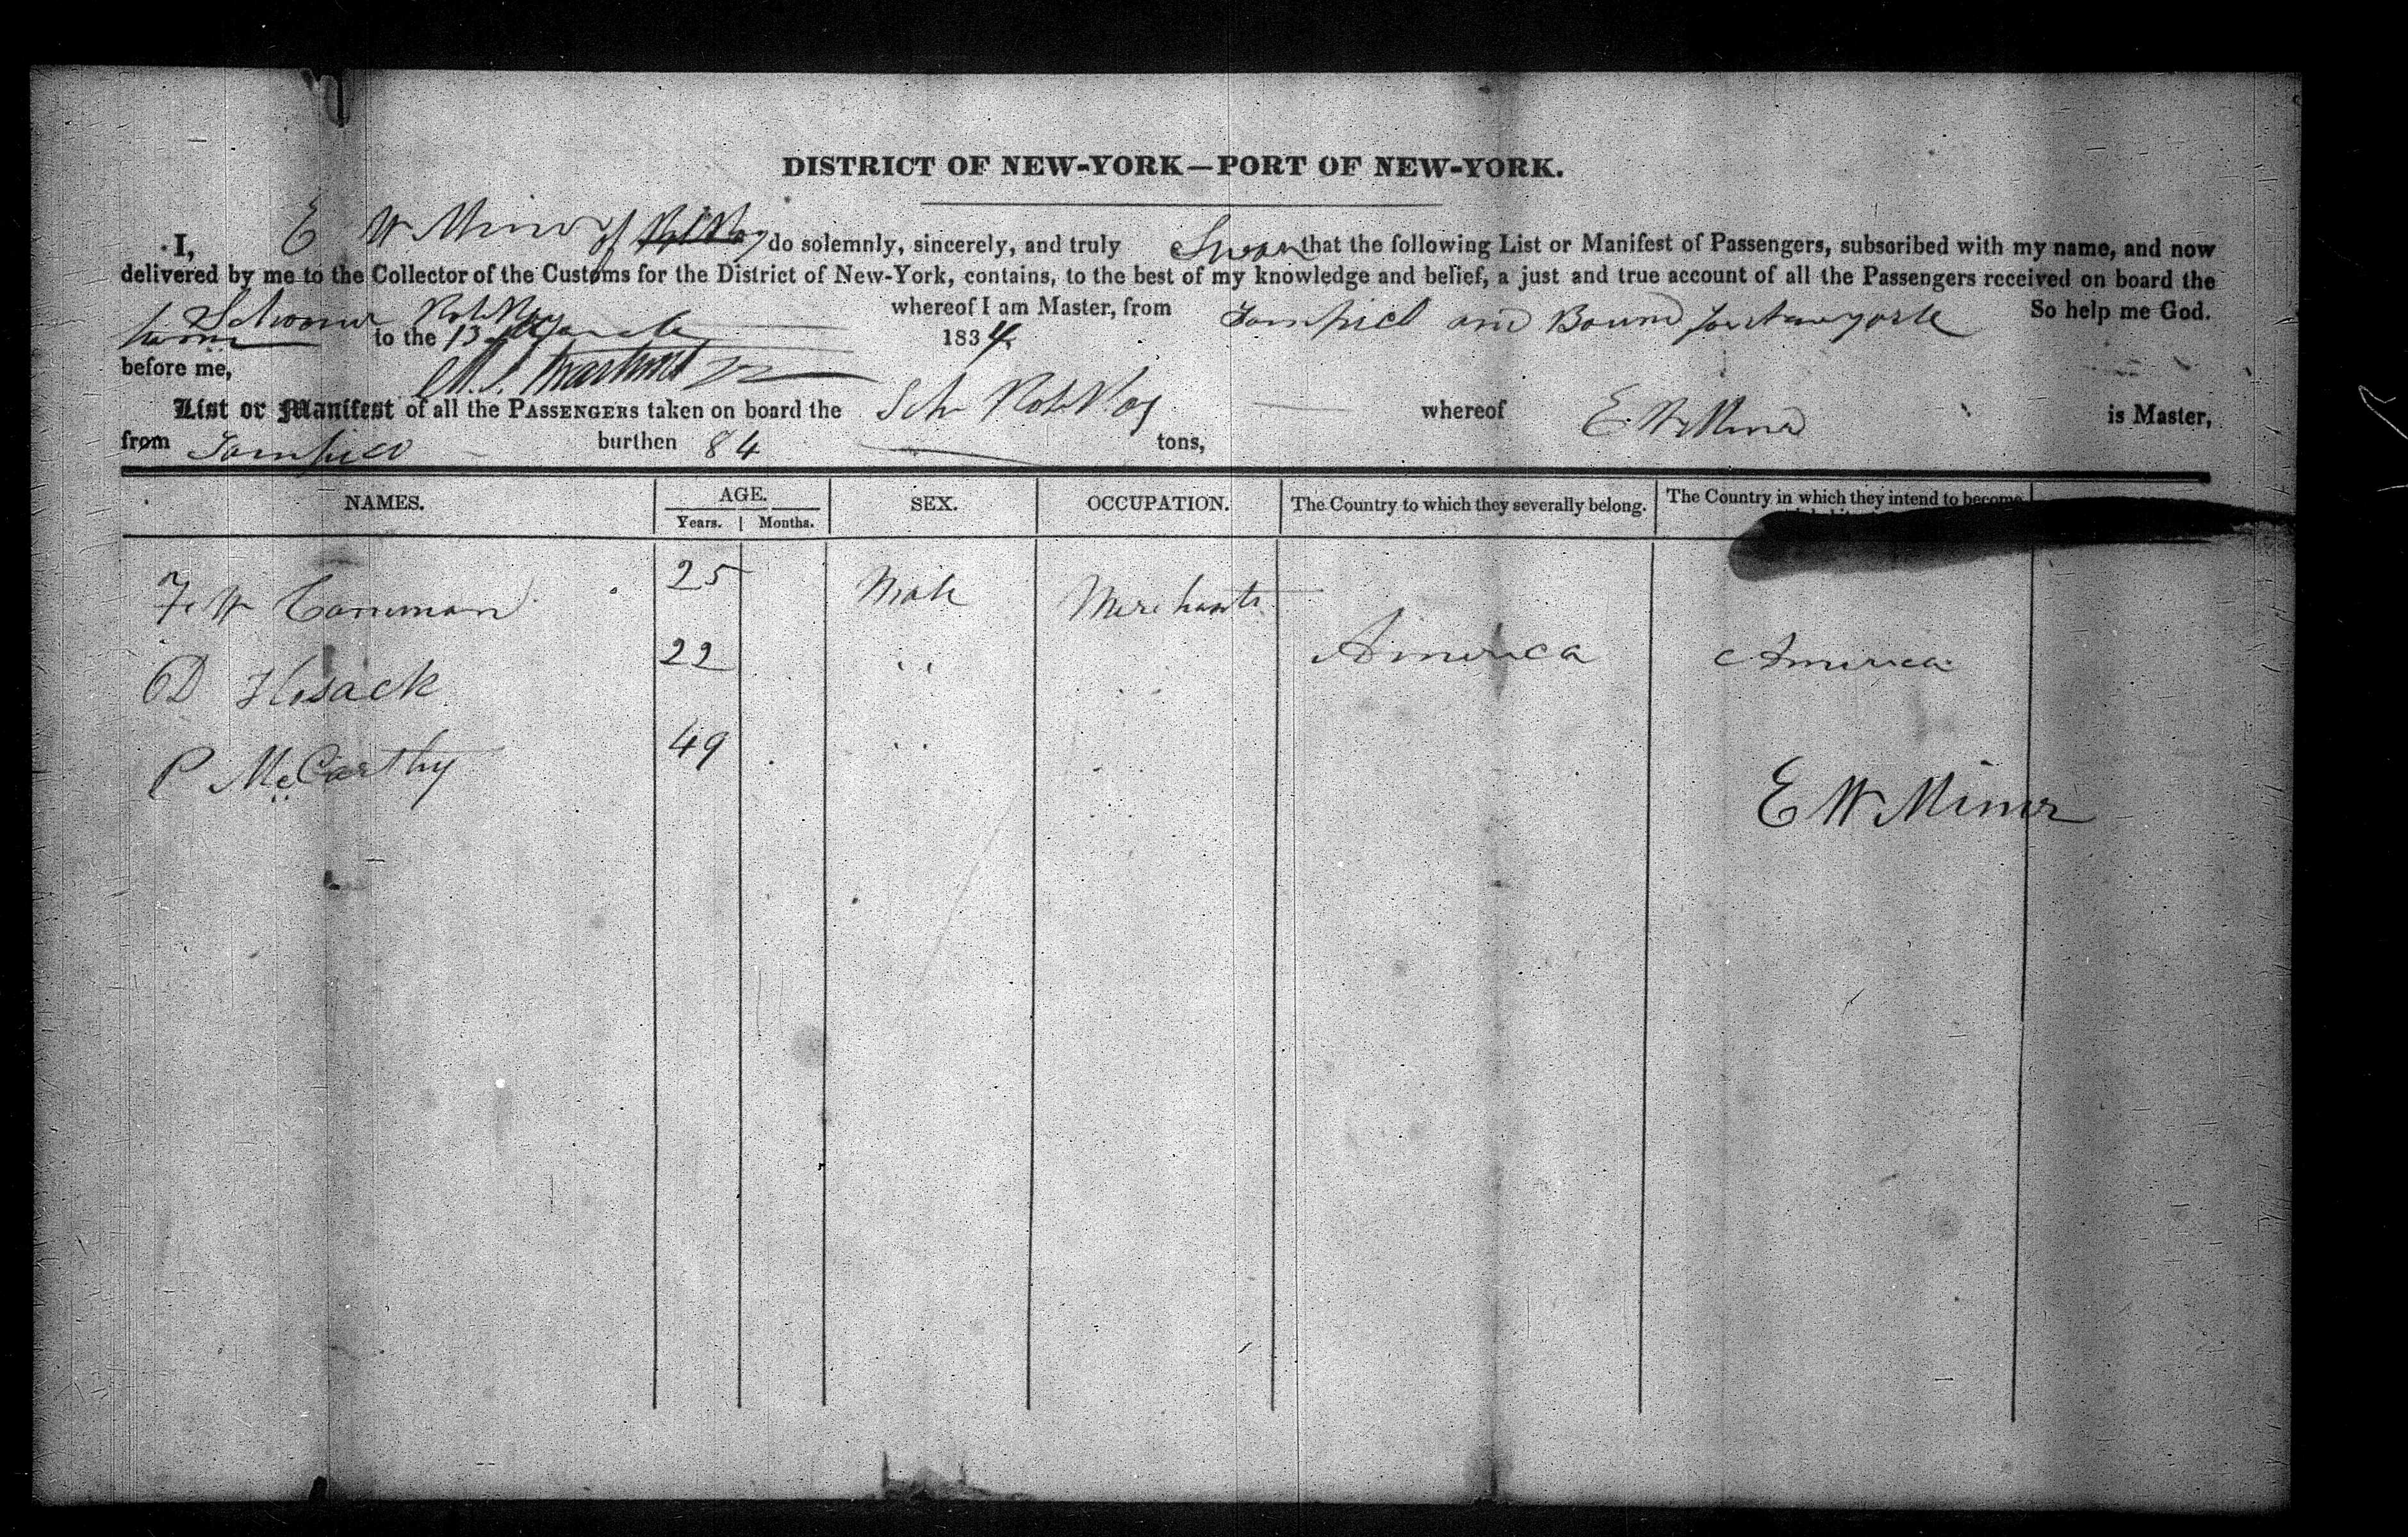 DISTRICT OF NEW-YORK—PORT OF NEW-YORK.
I, E W Minor of do solemnly, sincerely, and truly Swear that the following List or Manifest of Passengers, subscribed with my name, and now
delivered by me to the Collector of the Customs for the District of New-York, contains, to the best of my knowledge and belief, a just and true account of all the Passengers received on board the
Schooner Rob Roy whereof I am Master, from Tampico and Bound for Newyork So help me God.
Sworn to the 13 March 1834.
before me,
List or Manifest of all the PASSENGERS taken on board the Schr Rob Roy whereof E. W Minor is Master,
from Tampico burthen 84 tons,
NAMES. AGE. SEX. OCCUPATION. The Country to which they severally belong. The Country in which they intend to become
Years. Months.
F. W 25 Male Merchants
D Hosack 22 " America America
P McCarthy 49 "
E W Minor